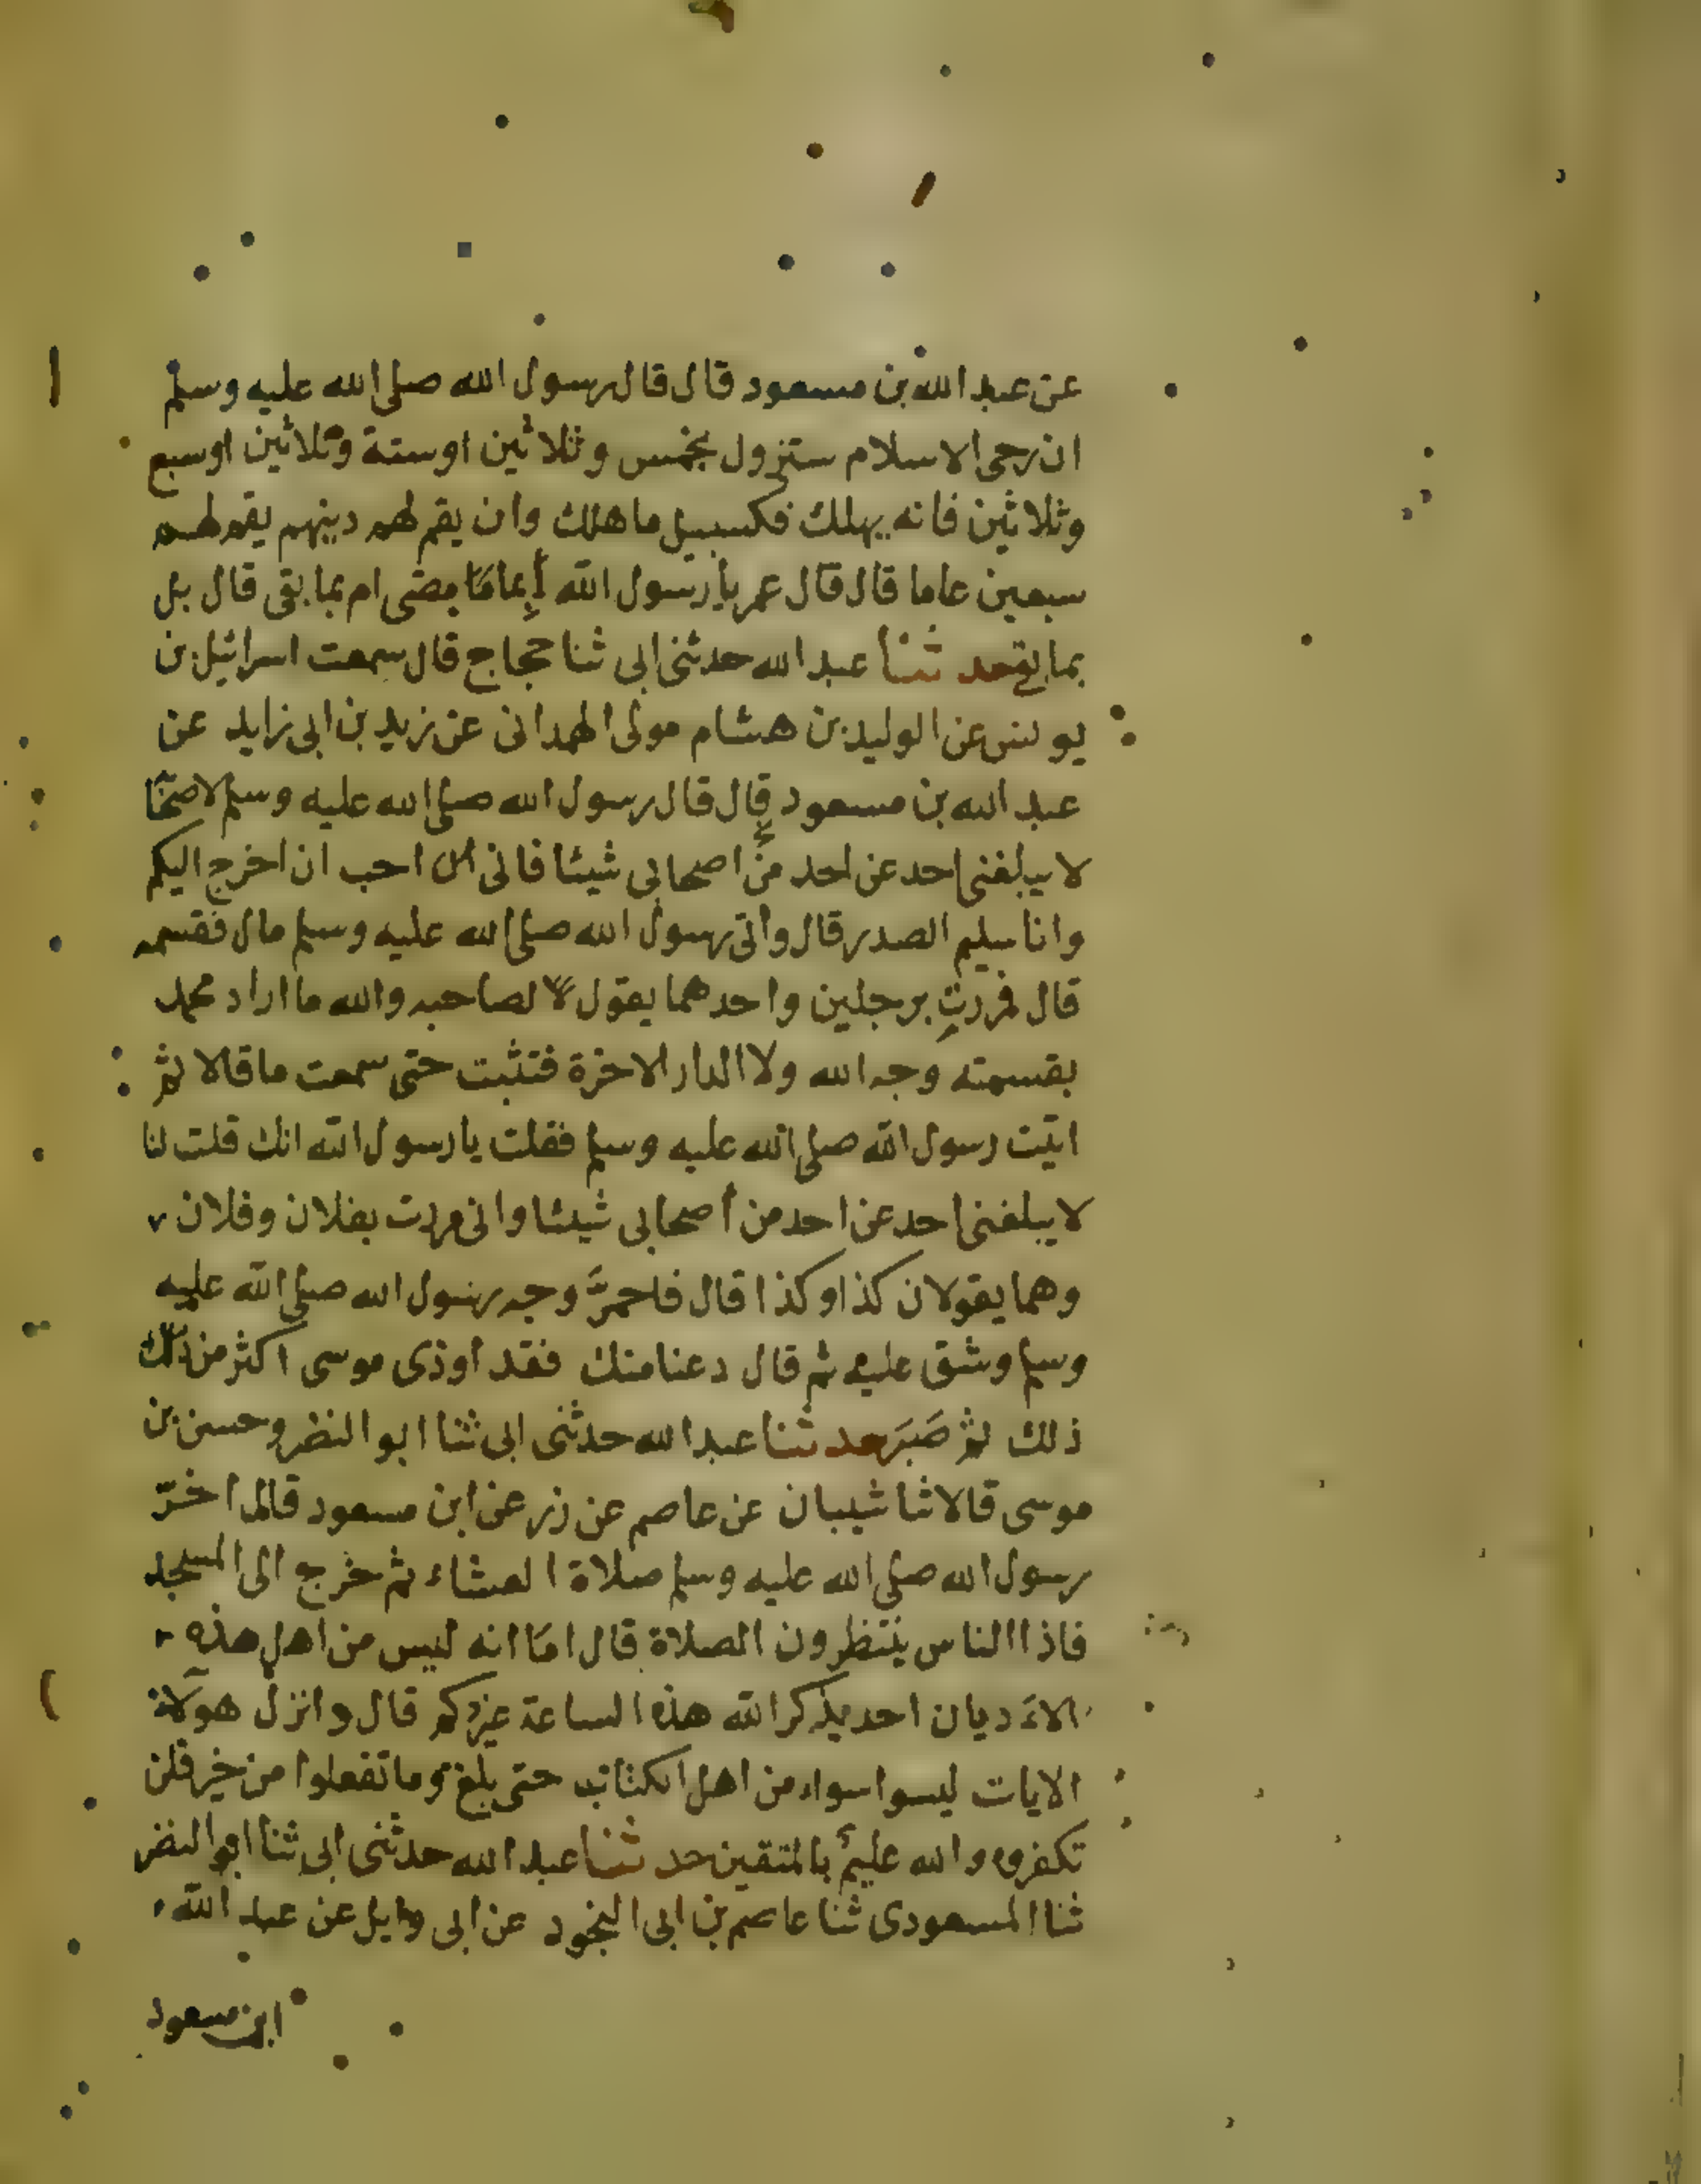 عن عبد الله بن مسعود قال قال رسول الله صلى الله عليه وسلم
ان رحى الاسلام ستزول بخمس وثلاثين اوستة وثلاثين اوسبع
وثلاثين فانه يهلك فكسبيل ما هلك وان يقم لهم دينهم يقم لهم
سبعين عاما قال قال عمر يا رسول الله أبما مَا مضى ام بما بقى قال بل
بما بقى حدثنا عبد الله حدثنى ابى ثنا حجاج قال سمعت اسرائيل بن
يونس عن الوليد بن هشام مولى الهمدانى عن زيد بن ابى زايد عن
عبد الله بن مسعود قال قال رسول الله صلى الله عليه وسلم لاصحابه
لا يبلغنى احد عن احد من اصحابى شيئا فانى احب ان اخرج اليكم
وانا سليم الصدر قال واتى رسول الله صلى الله عليه وسلم مال فقسمه
قال فمررت برجلين واحدهما يقول لصاحبه والله ما اراد محمد
بقسمته وجه الله ولا الدار الاخرة فتثبت حتى سمعت ما قالا ثم
اتيت رسول الله صلى الله عليه وسلم فقلت يا رسول الله انك قلت لنا
لا يبلغنى احد عن احد من أصحابى شيئا وانى مررت بفلان وفلان
وهما يقولان كذا وكذا قال فاحمرَّ وجه رسول الله صلى الله عليه
وسلم وشق عليه ثم قال دعنا منك فقد اوذى موسى اكثر من ذلك
ذلك ثم صَبَر حدثنا عبد الله حدثنى ابى ثنا ابو النضر وحسن بن
موسى قالا ثنا شيبان عن عاصم عن زر عن ابن مسعود قال اخّر
رسول الله صلى الله عليه وسلم صلاة العشاء ثم خرج الى المسجد
فاذا الناس ينتظرون الصلاة قال امَا انه ليس من اهل هذه
الاديان احد يذكر الله هذه الساعة غيركم قال وانزل هولاء
الايات ليسوا سواء من اهل الكتاب حتى بلغ وما تفعلوا من خير فلن
تكفروه والله عليمٌ بالمتقين حدثنا عبد الله حدثنى ابى ثنا ابو النضر
ثنا المسعودى ثنا عاصم بن ابى النجود عن ابى وايل عن عبد الله
ابن مسعود